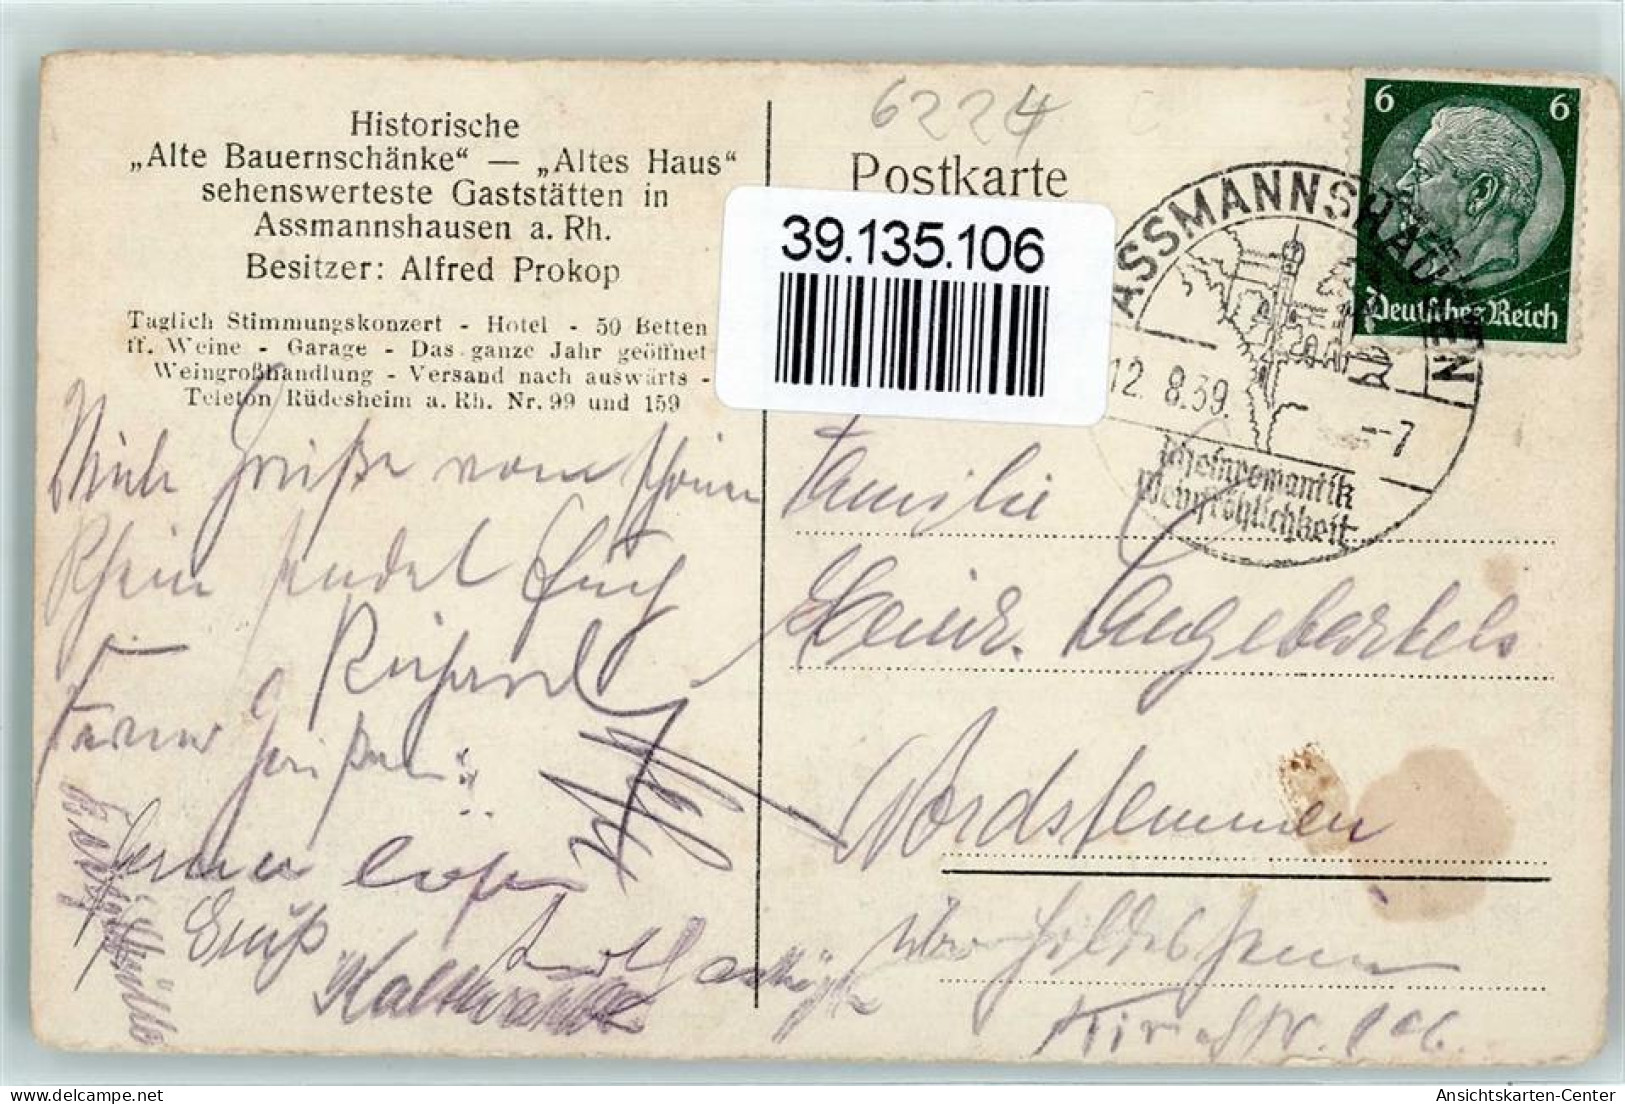 Historische
„Alte Bauernschänke“ — „Altes Haus“
sehenswerteste Gaststätten in
Assmannshausen a. Rh.
Besitzer: Alfred Prokop
Täglich Stimmungskonzert - Hotel - 50 Betten
ff. Weine - Garage - Das ganze Jahr geöffnet
Weingroßhandlung - Versand nach auswärts -
Telefon Rüdesheim a. Rh. Nr. 99 und 159
6224
Postkarte
39.135.106
6 6
Deutsches Reich
ASSMANNSHAUSEN
12. 8.39. --7
Rheinromantik
Weinfröhlichkeit
Grüße vom schönen
Rhein sendet Euch
Richard
Ferner grüßen:
Gruß
Familie
Heinr. Engebartels
Nordstemmen
über Hildesheim
Ansichtskarten-Center